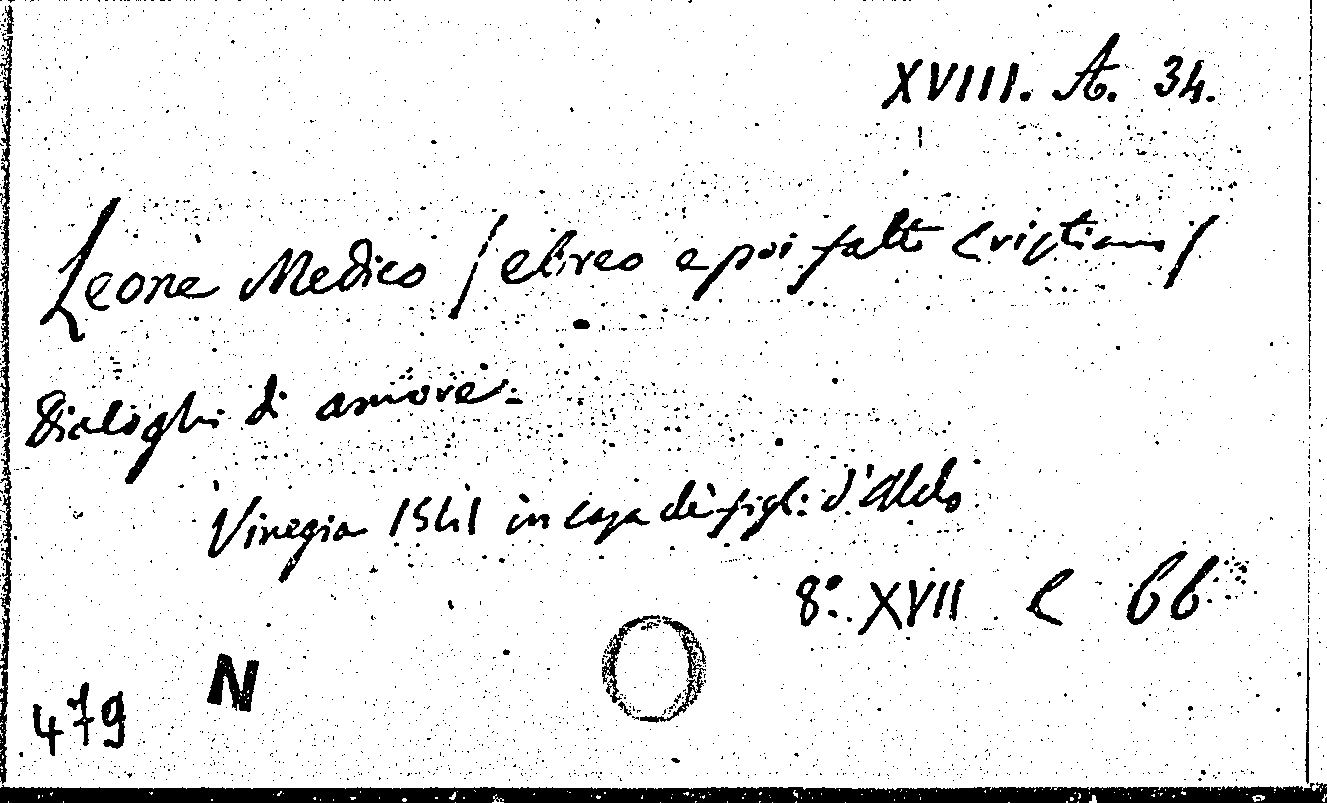 XVIII. A. 34.
Leone Medico / ebreo e poi fatto Cristiano /
Dialoghi di amore.
Vinegia 1541 in casa de' figli d'Aldo
8º. XVII C 66
N
479